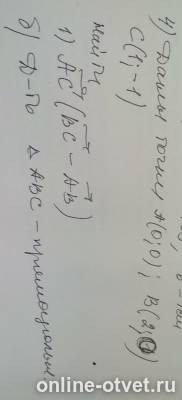 4) Даны точки A(0;0); B(2;0)
C(1;-1)
Найти
1) AC (BC - AB)
б) Д-ть △ ABC - прямоугольн
online-otvet.ru